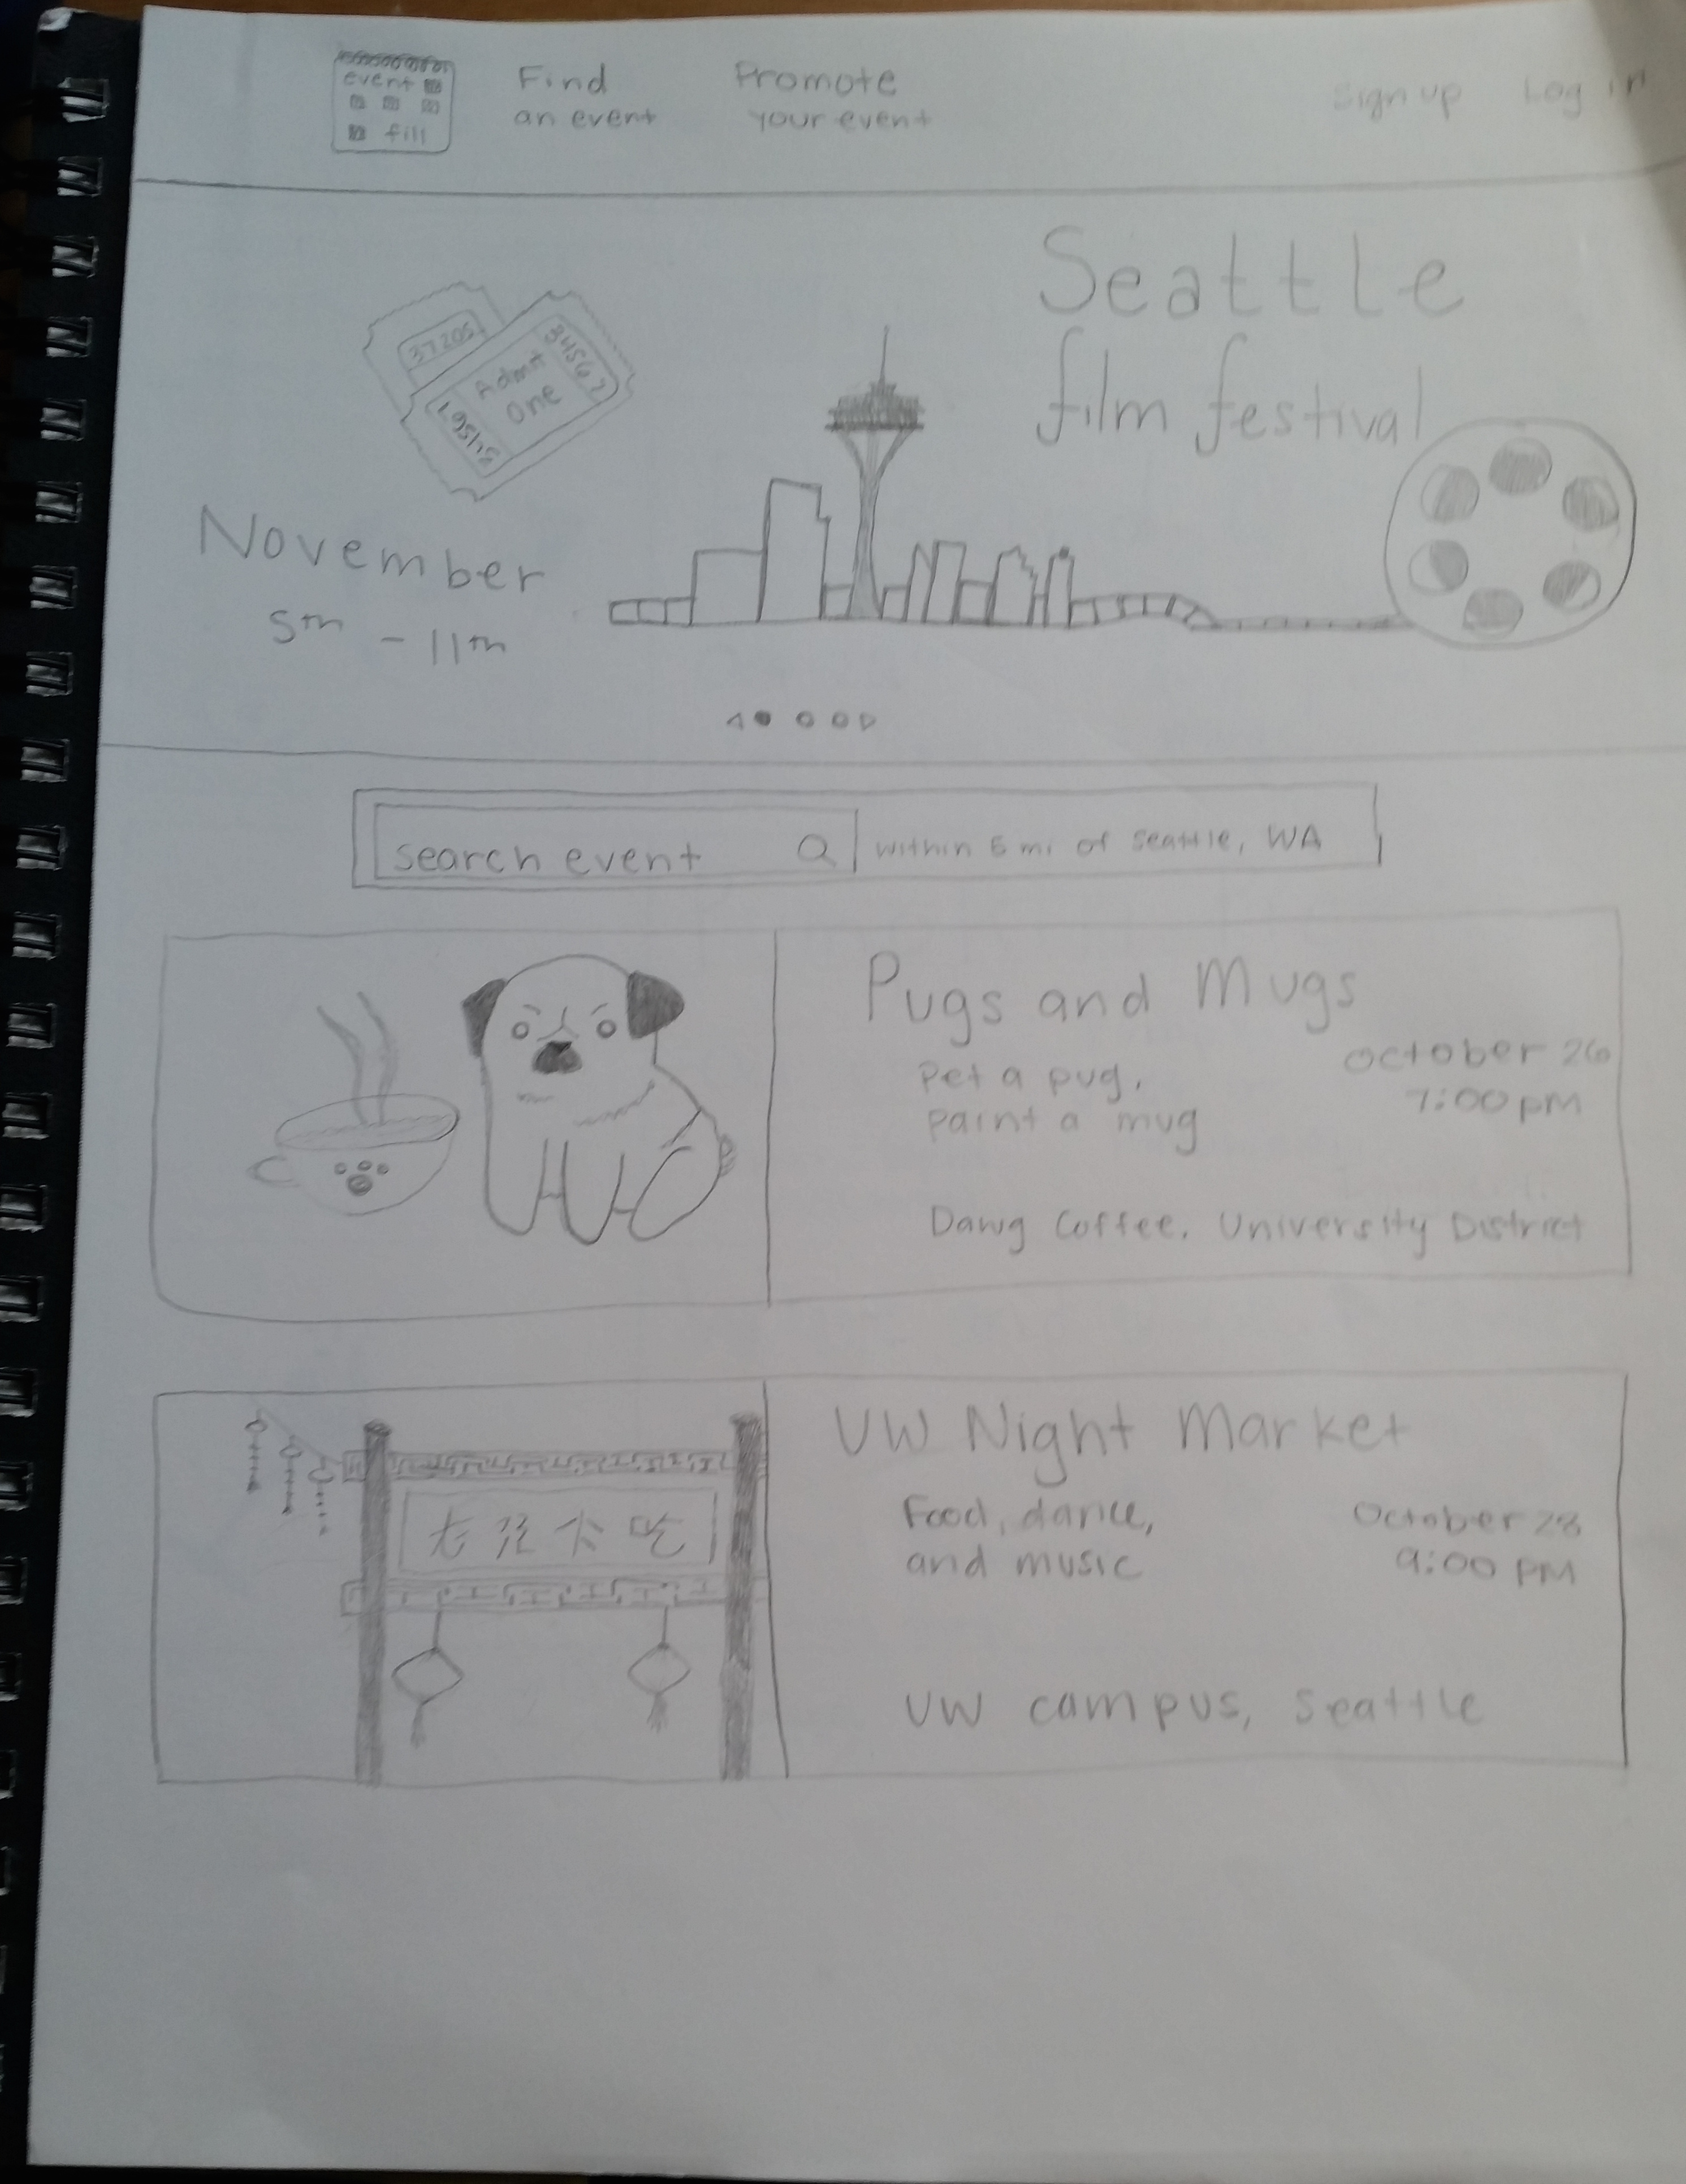 event
fill
Find
an event
Promote
your event
Sign up
Log in
Seattle
film festival
37205
34567
Admit
One
November
5th - 11th
search event
within 5 mi of Seattle, WA
Pugs and Mugs
Pet a pug,
paint a mug
October 26
7:00 pm
Dawg Coffee, University District
UW Night Market
Food, dance,
and music
October 28
9:00 PM
UW campus, Seattle